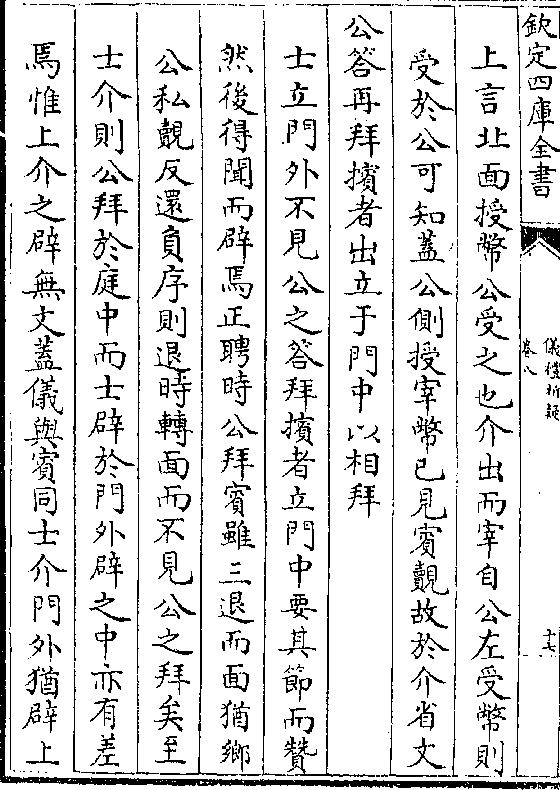 欽定四庫全書
儀禮析疑
卷八
十七
上言北面授幣公受之也介出而宰自公左受幣則
受於公可知蓋公側授宰幣已見賓覿故於介省文
公答再拜擯者出立于門中以相拜
士立門外不見公之答拜擯者立門中要其節而贊
然後得聞而辟焉正聘時公拜賓雖三退而面猶鄉
公私覿反還負序則退時轉面而不見公之拜矣至
士介則公拜於庭中而士辟於門外辟之中亦有差
焉惟上介之辟無文蓋儀與賓同士介門外猶辟上